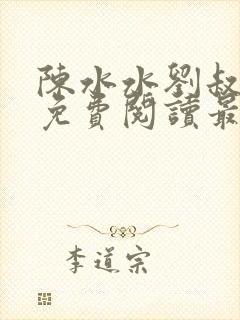 陳水水劉叔
免費閱讀最
李道宗